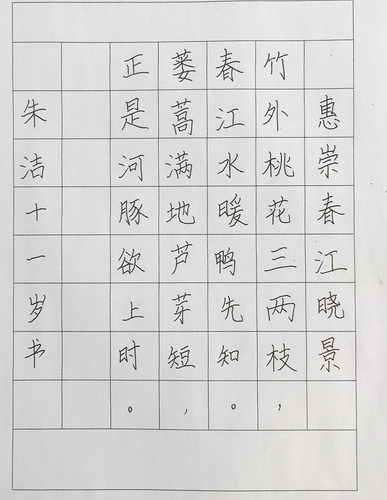 惠崇春江晓景
竹外桃花三两枝，
春江水暖鸭先知。
蒌蒿满地芦芽短，
正是河豚欲上时。
朱洁十一岁书